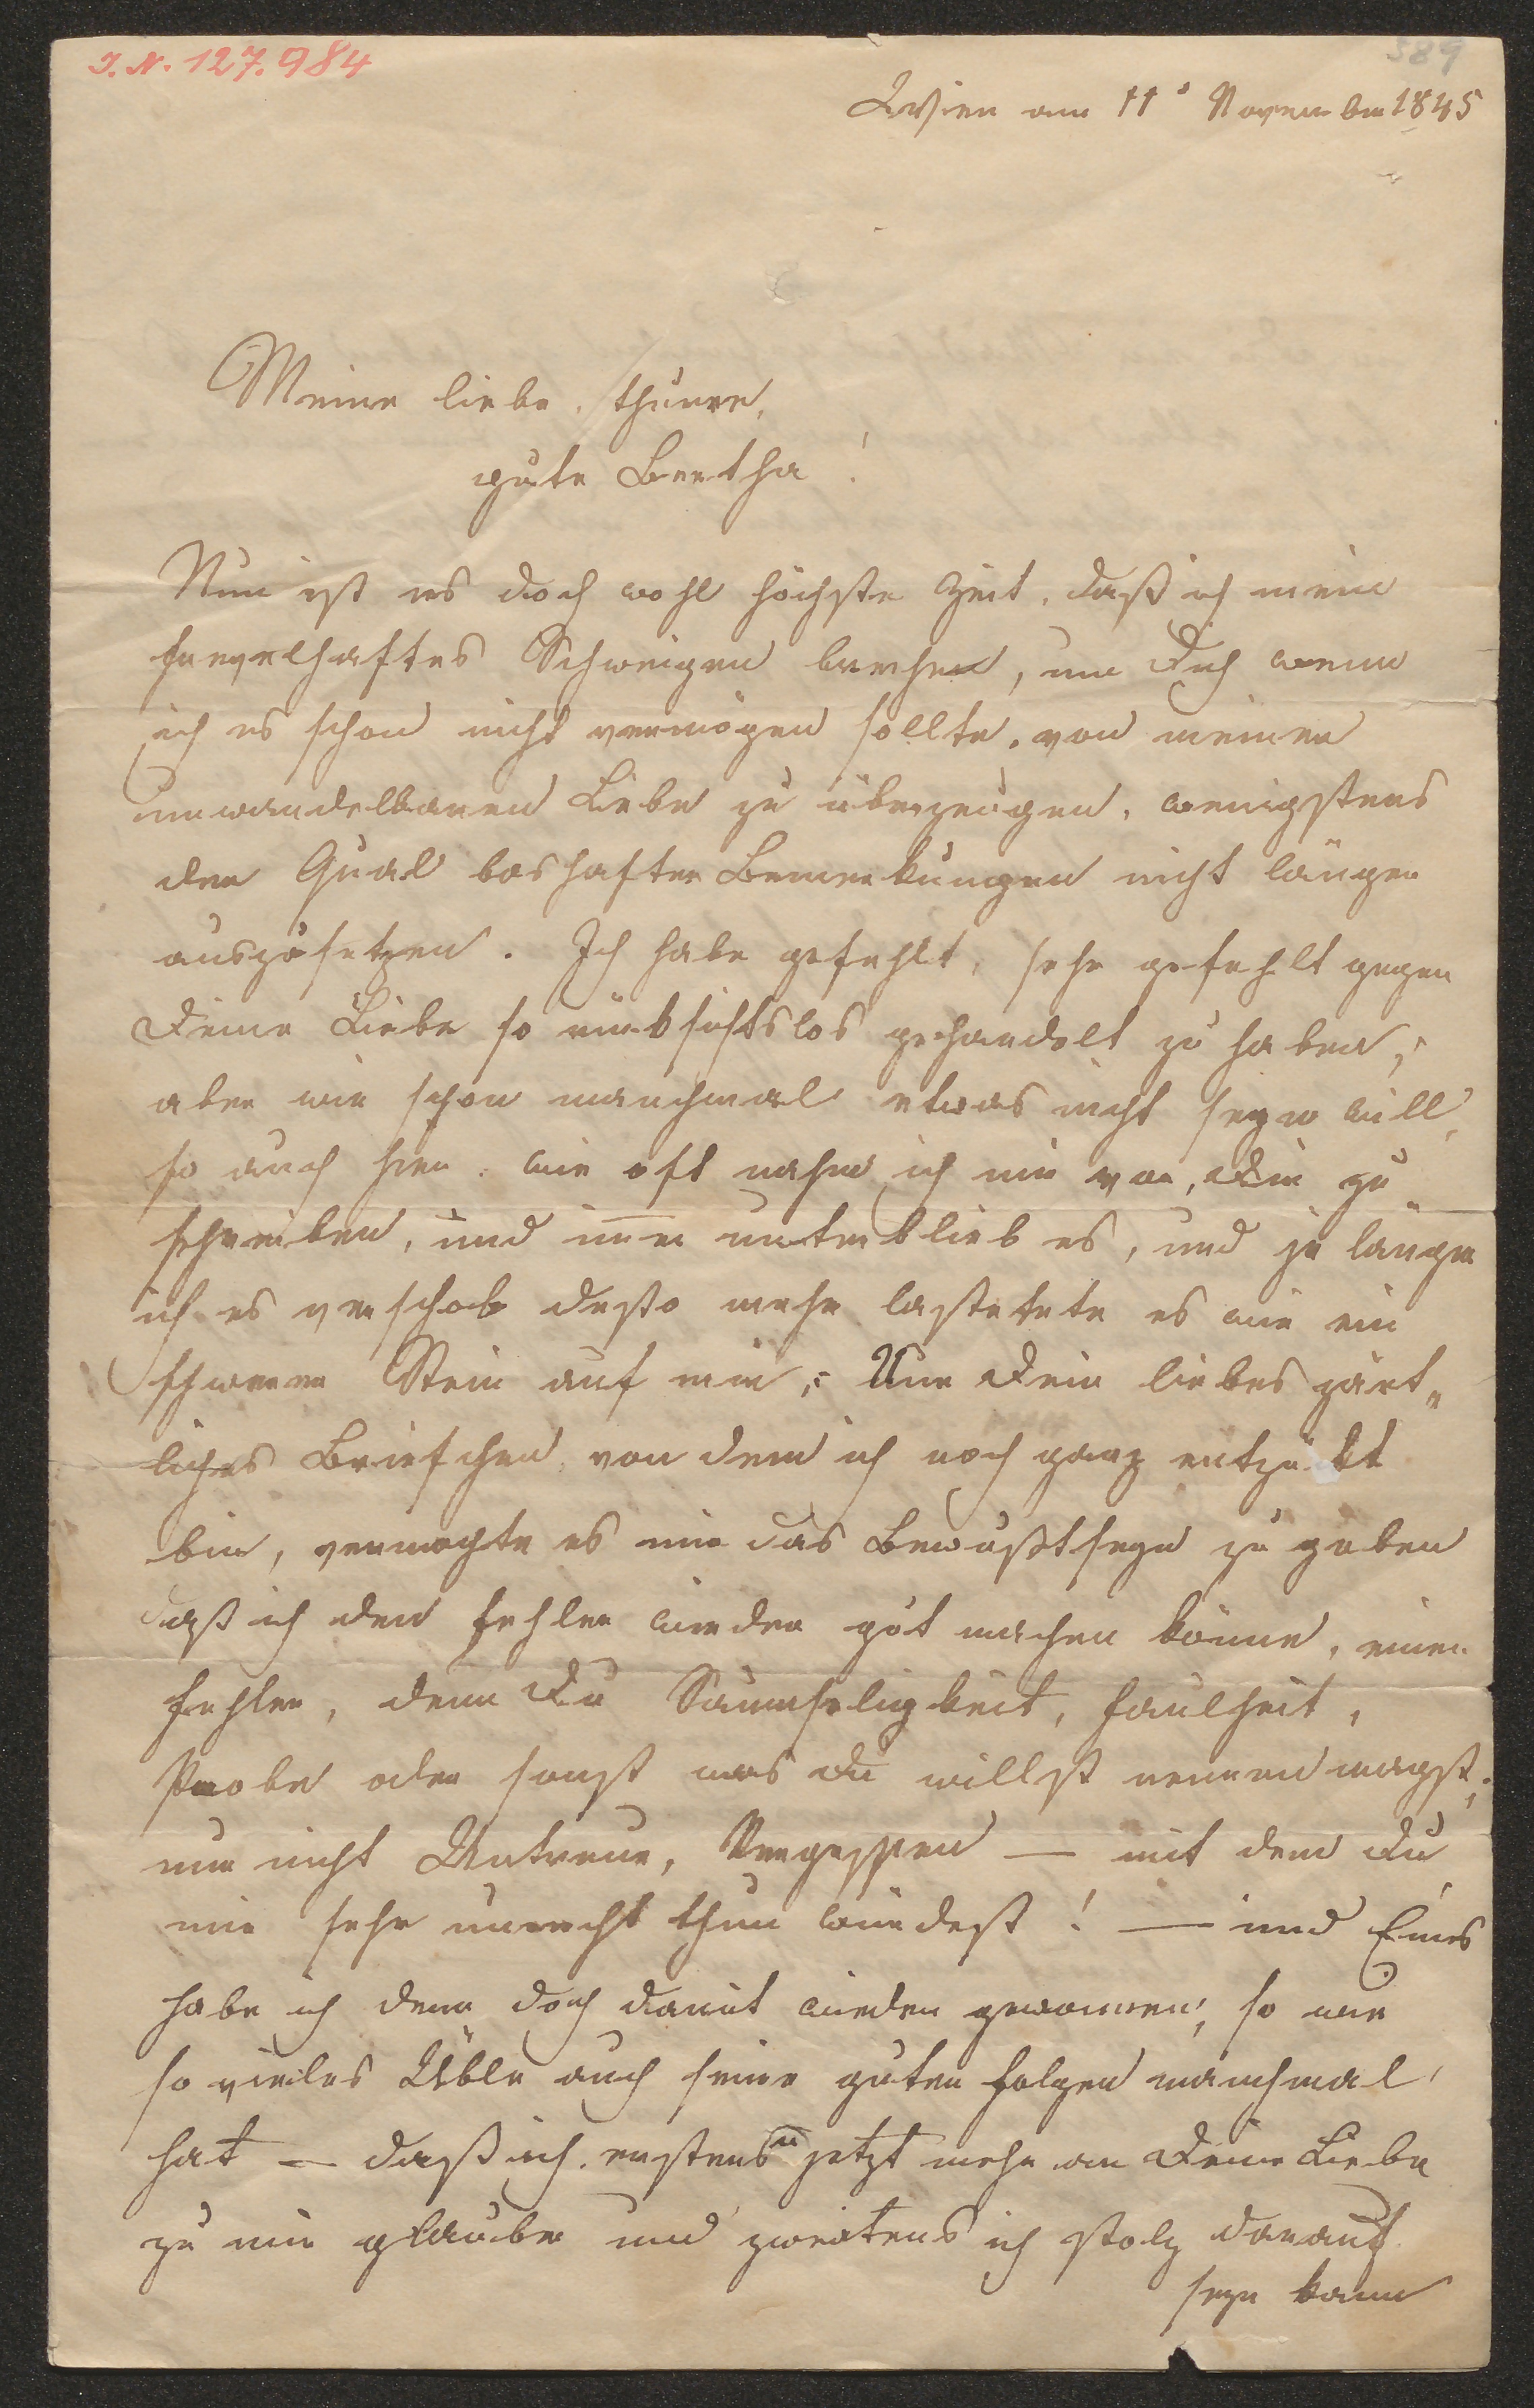 I. N. 127.984
589
Wien am 11t November 1845
Meine liebe, theure,
gute Bertha!
Nun ist es doch wohl höchste Zeit, daß ich mein
frevelhaftes Schweigen breche, um Dich wenn
ich es schon nicht vermögen sollte, von meiner
unwandelbaren Liebe zu überzeugen, wenigstens
der Qual boshafter Bemerkungen nicht länger
auszusetzen. Ich habe gefehlt, sehr gefehlt gegen
Deine Liebe so rücksichtslos gehandelt zu haben;
aber wie schon manchmal etwas nicht seyn will,
so auch hier. Wie oft nahm ich mir vor, Dir zu
schreiben, und immer unterblieb es, und je länger
ich es verschob desto mehr lastete es wie ein
schwerer Stein auf mir; Nur Dein liebes zärt„
liches Briefchen, von dem ich noch ganz entzückt
bin, vermochte es mir das Bewußtseyn zu geben
daß ich den Fehler wieder gut machen könne, einen
Fehler, denn Du Saumseligkeit, Faulheit,
Probe oder sonst was Du willst nennen magst;
nur nicht Untreue, Vergessen — mit dem Du
mir sehr unrecht thun würdest! — und Eines
habe ich denn doch damit wieder gewonnen, so wie
so vieles Üble auch seine guten Folgen manchmal
hat — daß ich erstens jetzt mehr an Deine Liebe
zu mir glaube und zweitens ich stolz darauf
seyn kann